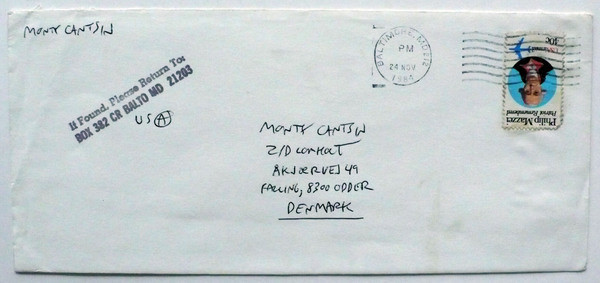 MONTY CANTSIN
If Found, Please Return To:
BOX 382 CR BALTO MD 21203
USA
BALTIMORE, MD 212
PM
24 NOV
1984
USAirmail
40c
Philip Mazzei
Patriot Remembered
MONTY CANTSIN
AKJÆRVEJ 49
FALLING, 8300 ODDER
DENMARK